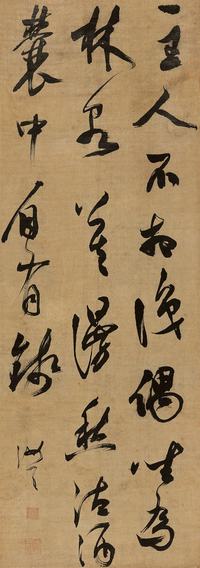 主人不相識偶坐為
林泉莫漫愁沽酒
囊中自有錢